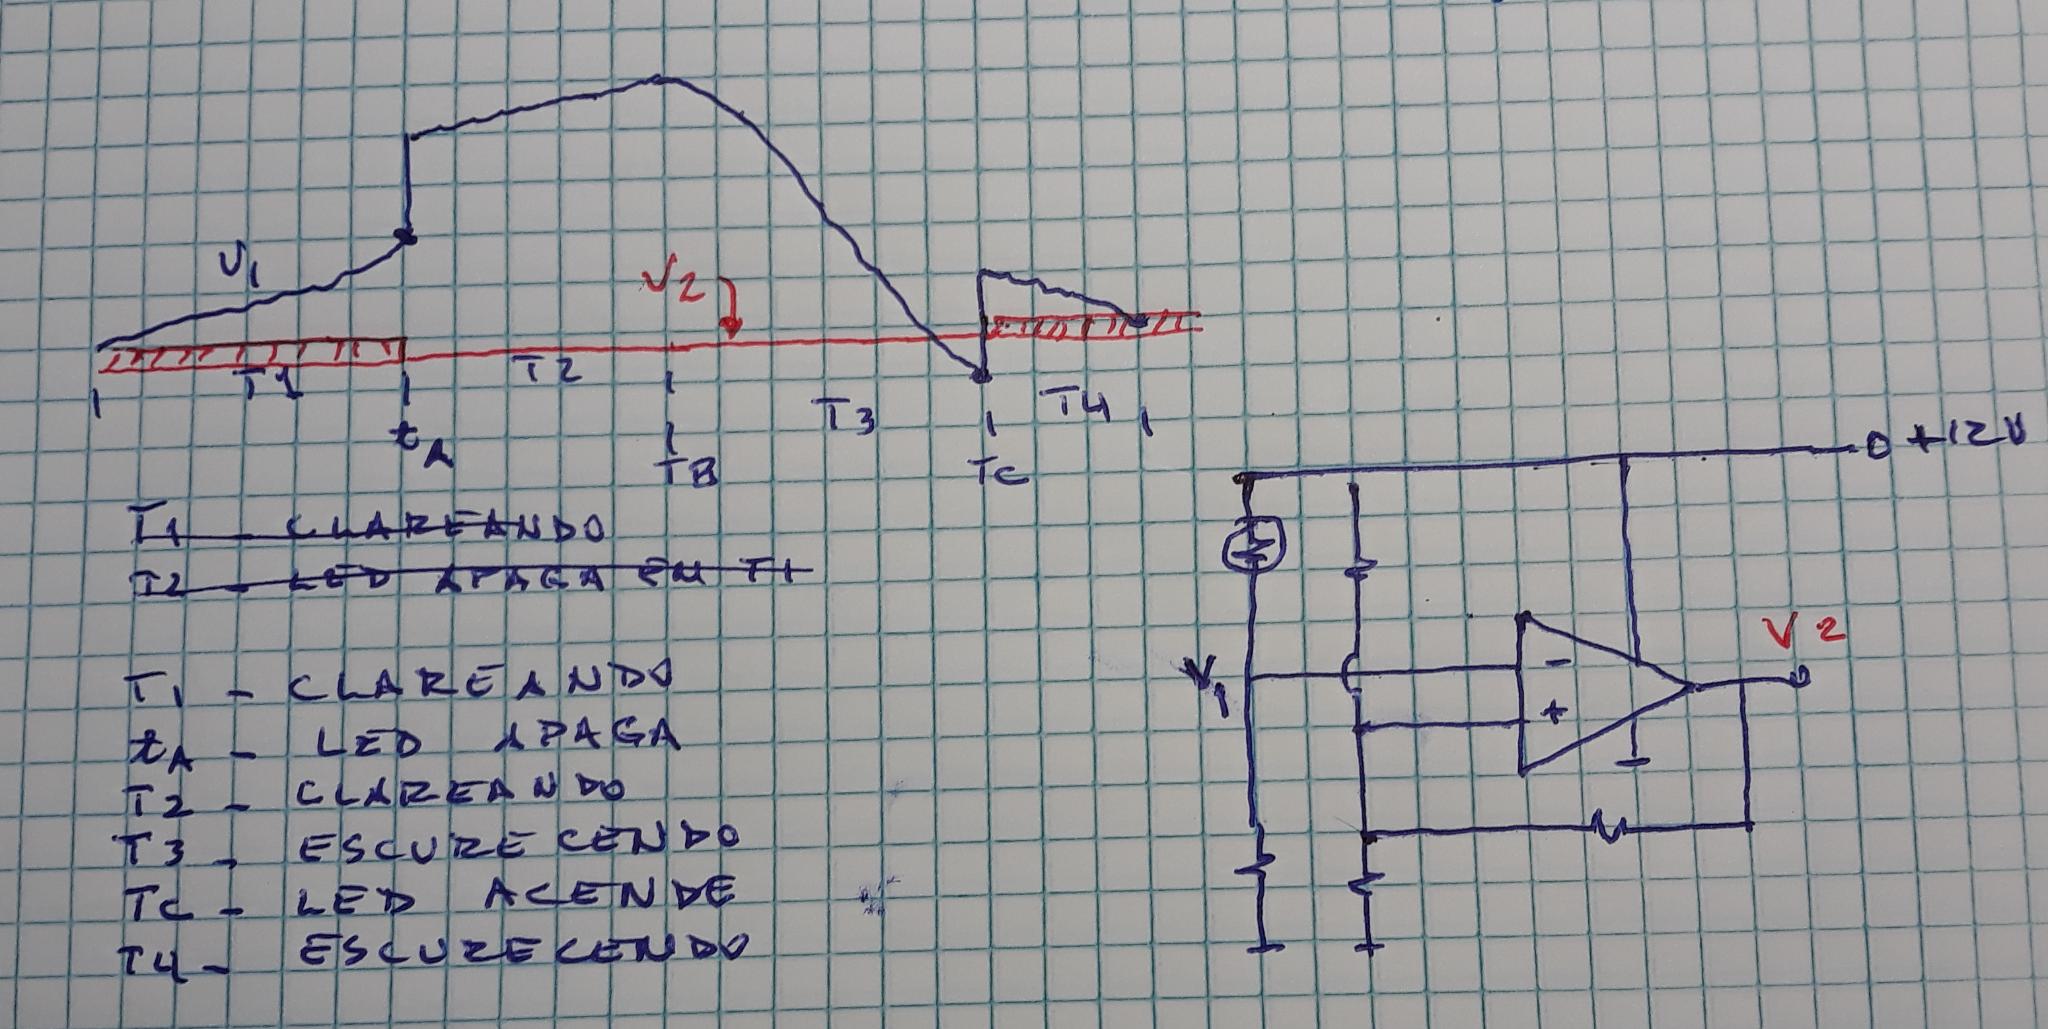 V1
V2
T1
T2
T3
T4
tA
TB
TC
+12V
T1 - CLAREANDO
T2 - LED APAGA EM T1
T1 - CLAREANDO
tA - LED APAGA
T2 - CLAREANDO
T3 - ESCURECENDO
TC - LED ACENDE
T4 - ESCURECENDO
V2
V1
-
+